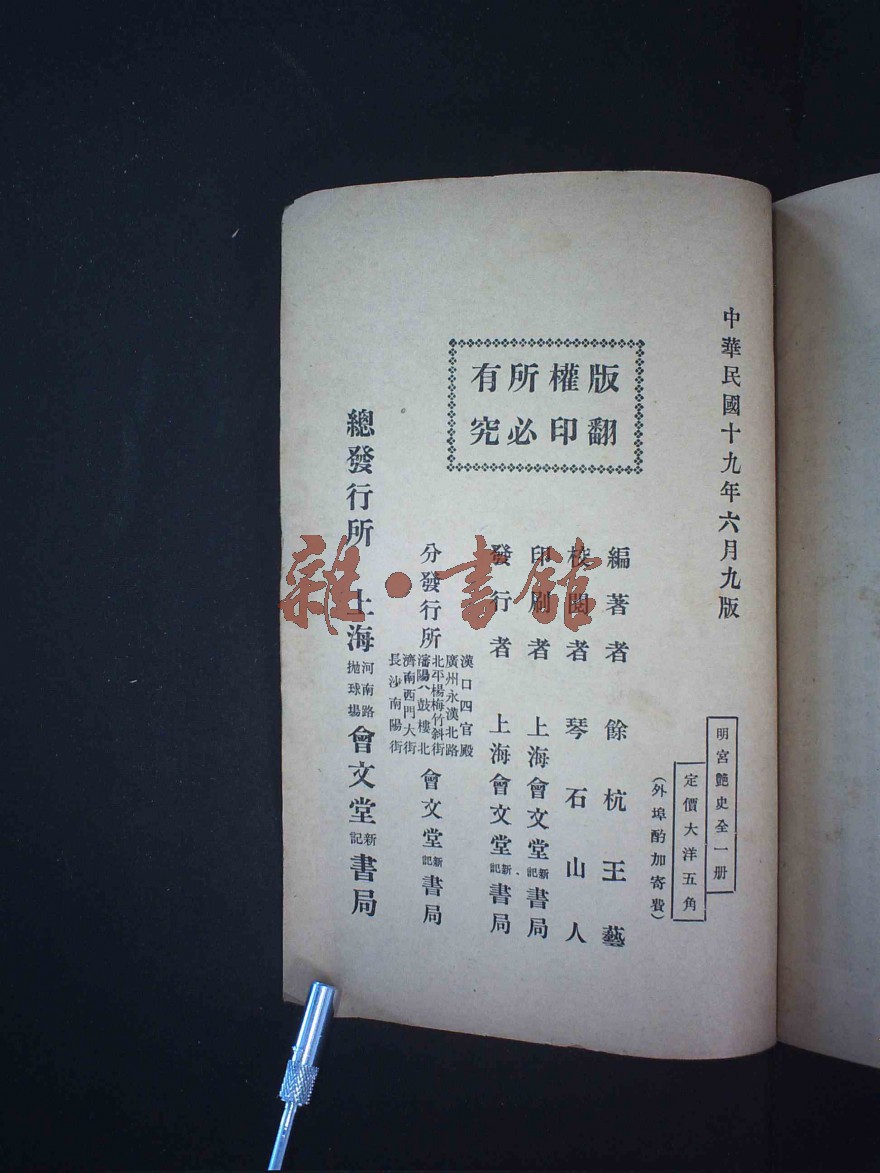 中華民國十九年六月九版
明宮艷史全一册
定價大洋五角
(外埠酌加寄費)
版權所有
翻印必究
編著者 餘杭王藝
校閱者 琴石山人
印刷者 上海會文堂新記書局
發行者 上海會文堂新記書局
分發行所
漢口四官殿
廣州永漢北路
北平楊梅竹斜街
瀋陽八鼓樓北
濟南西門大街
長沙南陽街
會文堂新記書局
總發行所 上海河南路拋球場會文堂新記書局
雜·書館